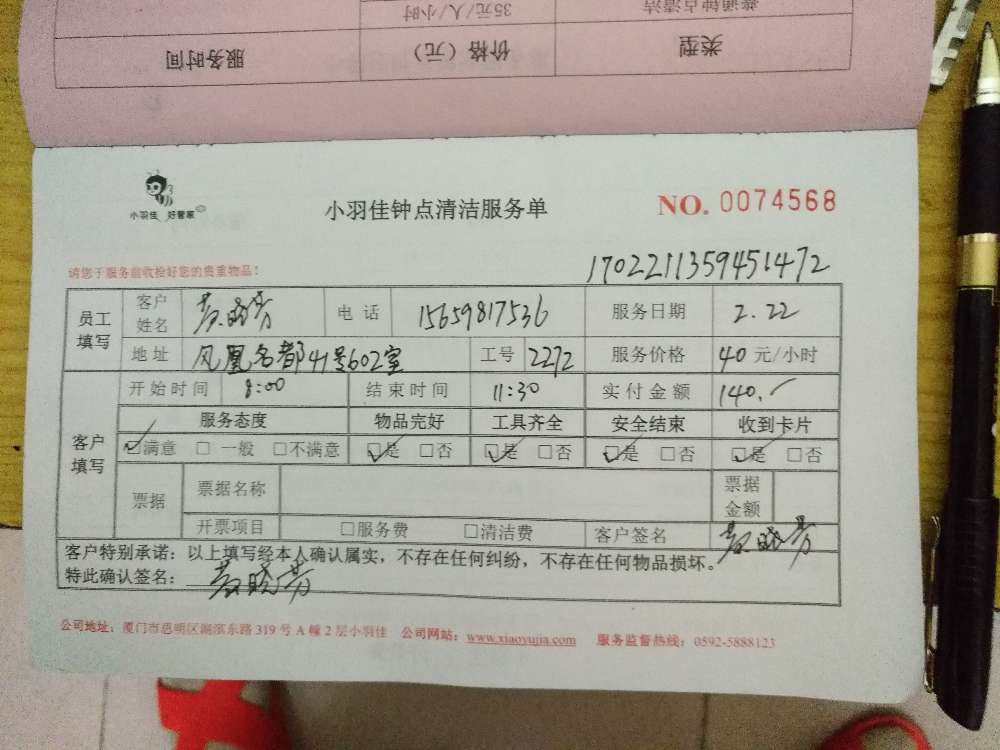 普通钟点清洁 35元/人/小时
类型 价格（元） 服务时间
小羽佳 好管家
小羽佳钟点清洁服务单
NO. 0074568
请您于服务前收检好您的贵重物品！
1702211359451472
员工填写 客户姓名 电话 15659817536 服务日期 2.22
地址 凤凰名都41号602室 工号 2272 服务价格 40元/小时
客户填写 开始时间 8:00 结束时间 11:30 实付金额 140.
服务态度 物品完好 工具齐全 安全结束 收到卡片
☑满意 □一般 □不满意 ☑是 □否 ☑是 □否 ☑是 □否 ☑是 □否
票据 票据名称 票据金额
开票项目 □服务费 □清洁费 客户签名
客户特别承诺：以上填写经本人确认属实，不存在任何纠纷，不存在任何物品损坏。
特此确认签名：
公司地址：厦门市思明区湖滨东路319号A幢2层小羽佳 公司网站：www.xiaoyujia.com 服务监督热线：0592-5888123